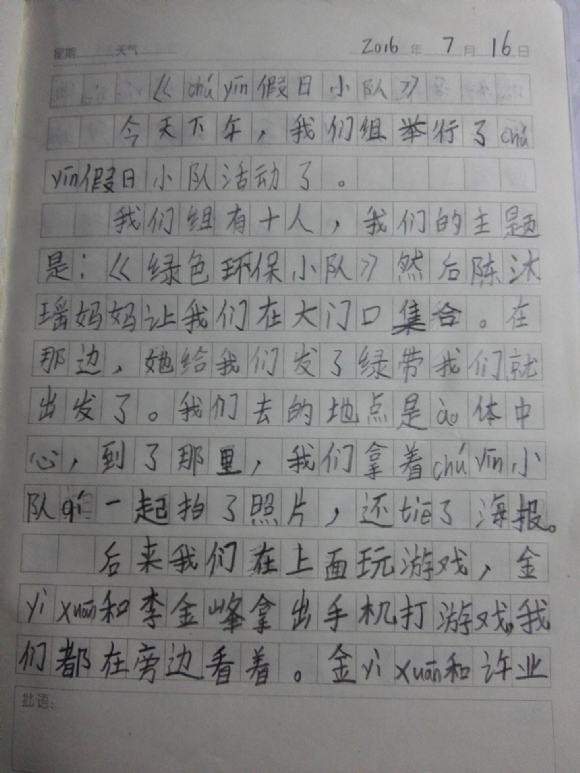 星期 天气 2016 年 7 月 16 日
《chú yīn假日小队》
今天下午，我们组举行了chú
yīn假日小队活动了。
我们组有十人，我们的主题
是：《绿色环保小队》然后陈沐
瑶妈妈让我们在大门口集合。在
那边，她给我们发了绿带我们就
出发了。我们去的地点是ào体中
心，到了那里，我们拿着chú yīn小
队qí一起拍了照片，还tiē了海报。
后来我们在上面玩游戏，金
yì xuān和李金峰拿出手机打游戏，我
们都在旁边看着。金yì xuān和许业
批语：